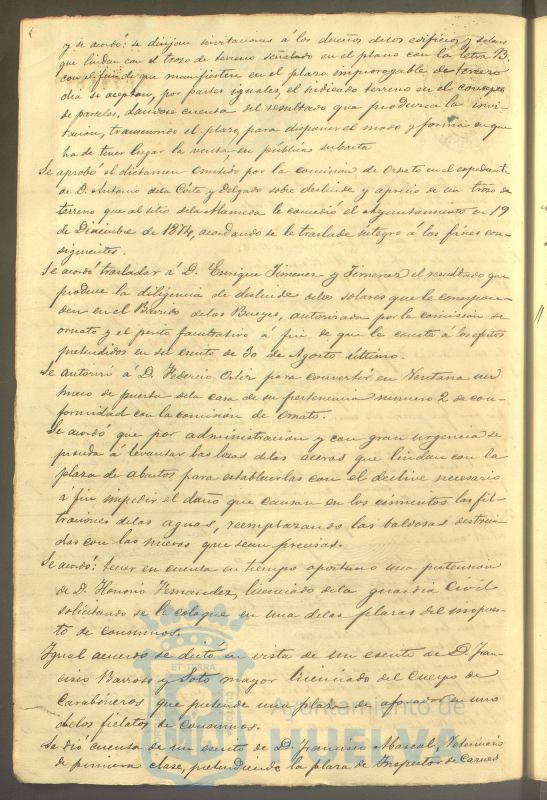 y se acordó: se dirijan invitaciones á los dueños de los edificios y solares
que lindan con el trozo de terreno señalado en el plano con la letra B.
con el fin de que manifiesten en el plazo improrogable de tercero
dia si aceptan, por partes iguales, el indicado terreno en el concepto
de parcelas, dandose cuenta del resultado que produzca la invi-
tación, trascurrido el plazo, para disponer el modo y forma en que
ha de tener lugar la venta, en pública subasta
Se aprobó el dictamen emitido por la comision de Ornato en el expediente
de D. Antonio de la Corte y Delgado sobre deslinde y aprecio de un trozo de
terreno que al sitio de la Alameda le concedió el Ayuntamiento en 19
de Diciembre de 1874, acordando se le traslade integro á los fines con-
siguientes.
Se acordó trasladar á D. Enrique Jimenez y Jimenez el resultado que
produce la diligencia de deslinde de los solares que le correspon-
den en el Barrido de los Bueyes, autorizada por la comision de
ornato y el perito facultativo á fin de que le conste á los efectos
pretendidos en su escrito de 30 de Agosto último.
Se autorizó á D. Federico Ortiz para convertir en Ventana un
hueco de puerta de la casa de su pertenencia numero 2 de con-
formidad con la comision de Ornato.
Se acordó que por administracion y con gran urgencia se
proceda á levantar las losas de las aceras que lindan con la
plaza de abastos para establecerlas con el declive necesario
á fin impedir el daño que causan en los cimientos las fil-
traciones de las aguas, reemplazando las baldosas destrui-
das con las nuevas que sean precisas.
Se acordó: tener en cuenta en tiempo oportuno una pretension
de D. Honorio Fernandez, licenciado de la guardia Civil
solicitando se le coloque en una de las plazas del impues-
to de consumos.
Igual acuerdo se dictó en vista de un escrito de D. Fran-
cisco Barroso y Soto mayor licenciado del Cuerpo de
Carabineros que pretende una plaza de aforador en uno
de los fielatos de Consumos.
Se dió cuenta de un escrito de D. Francisco Mascal, Veterinario
de primera clase, pretendiendo la plaza de Inspector de Carnes
ET TERRÆ
Ayuntamiento de
HUELVA